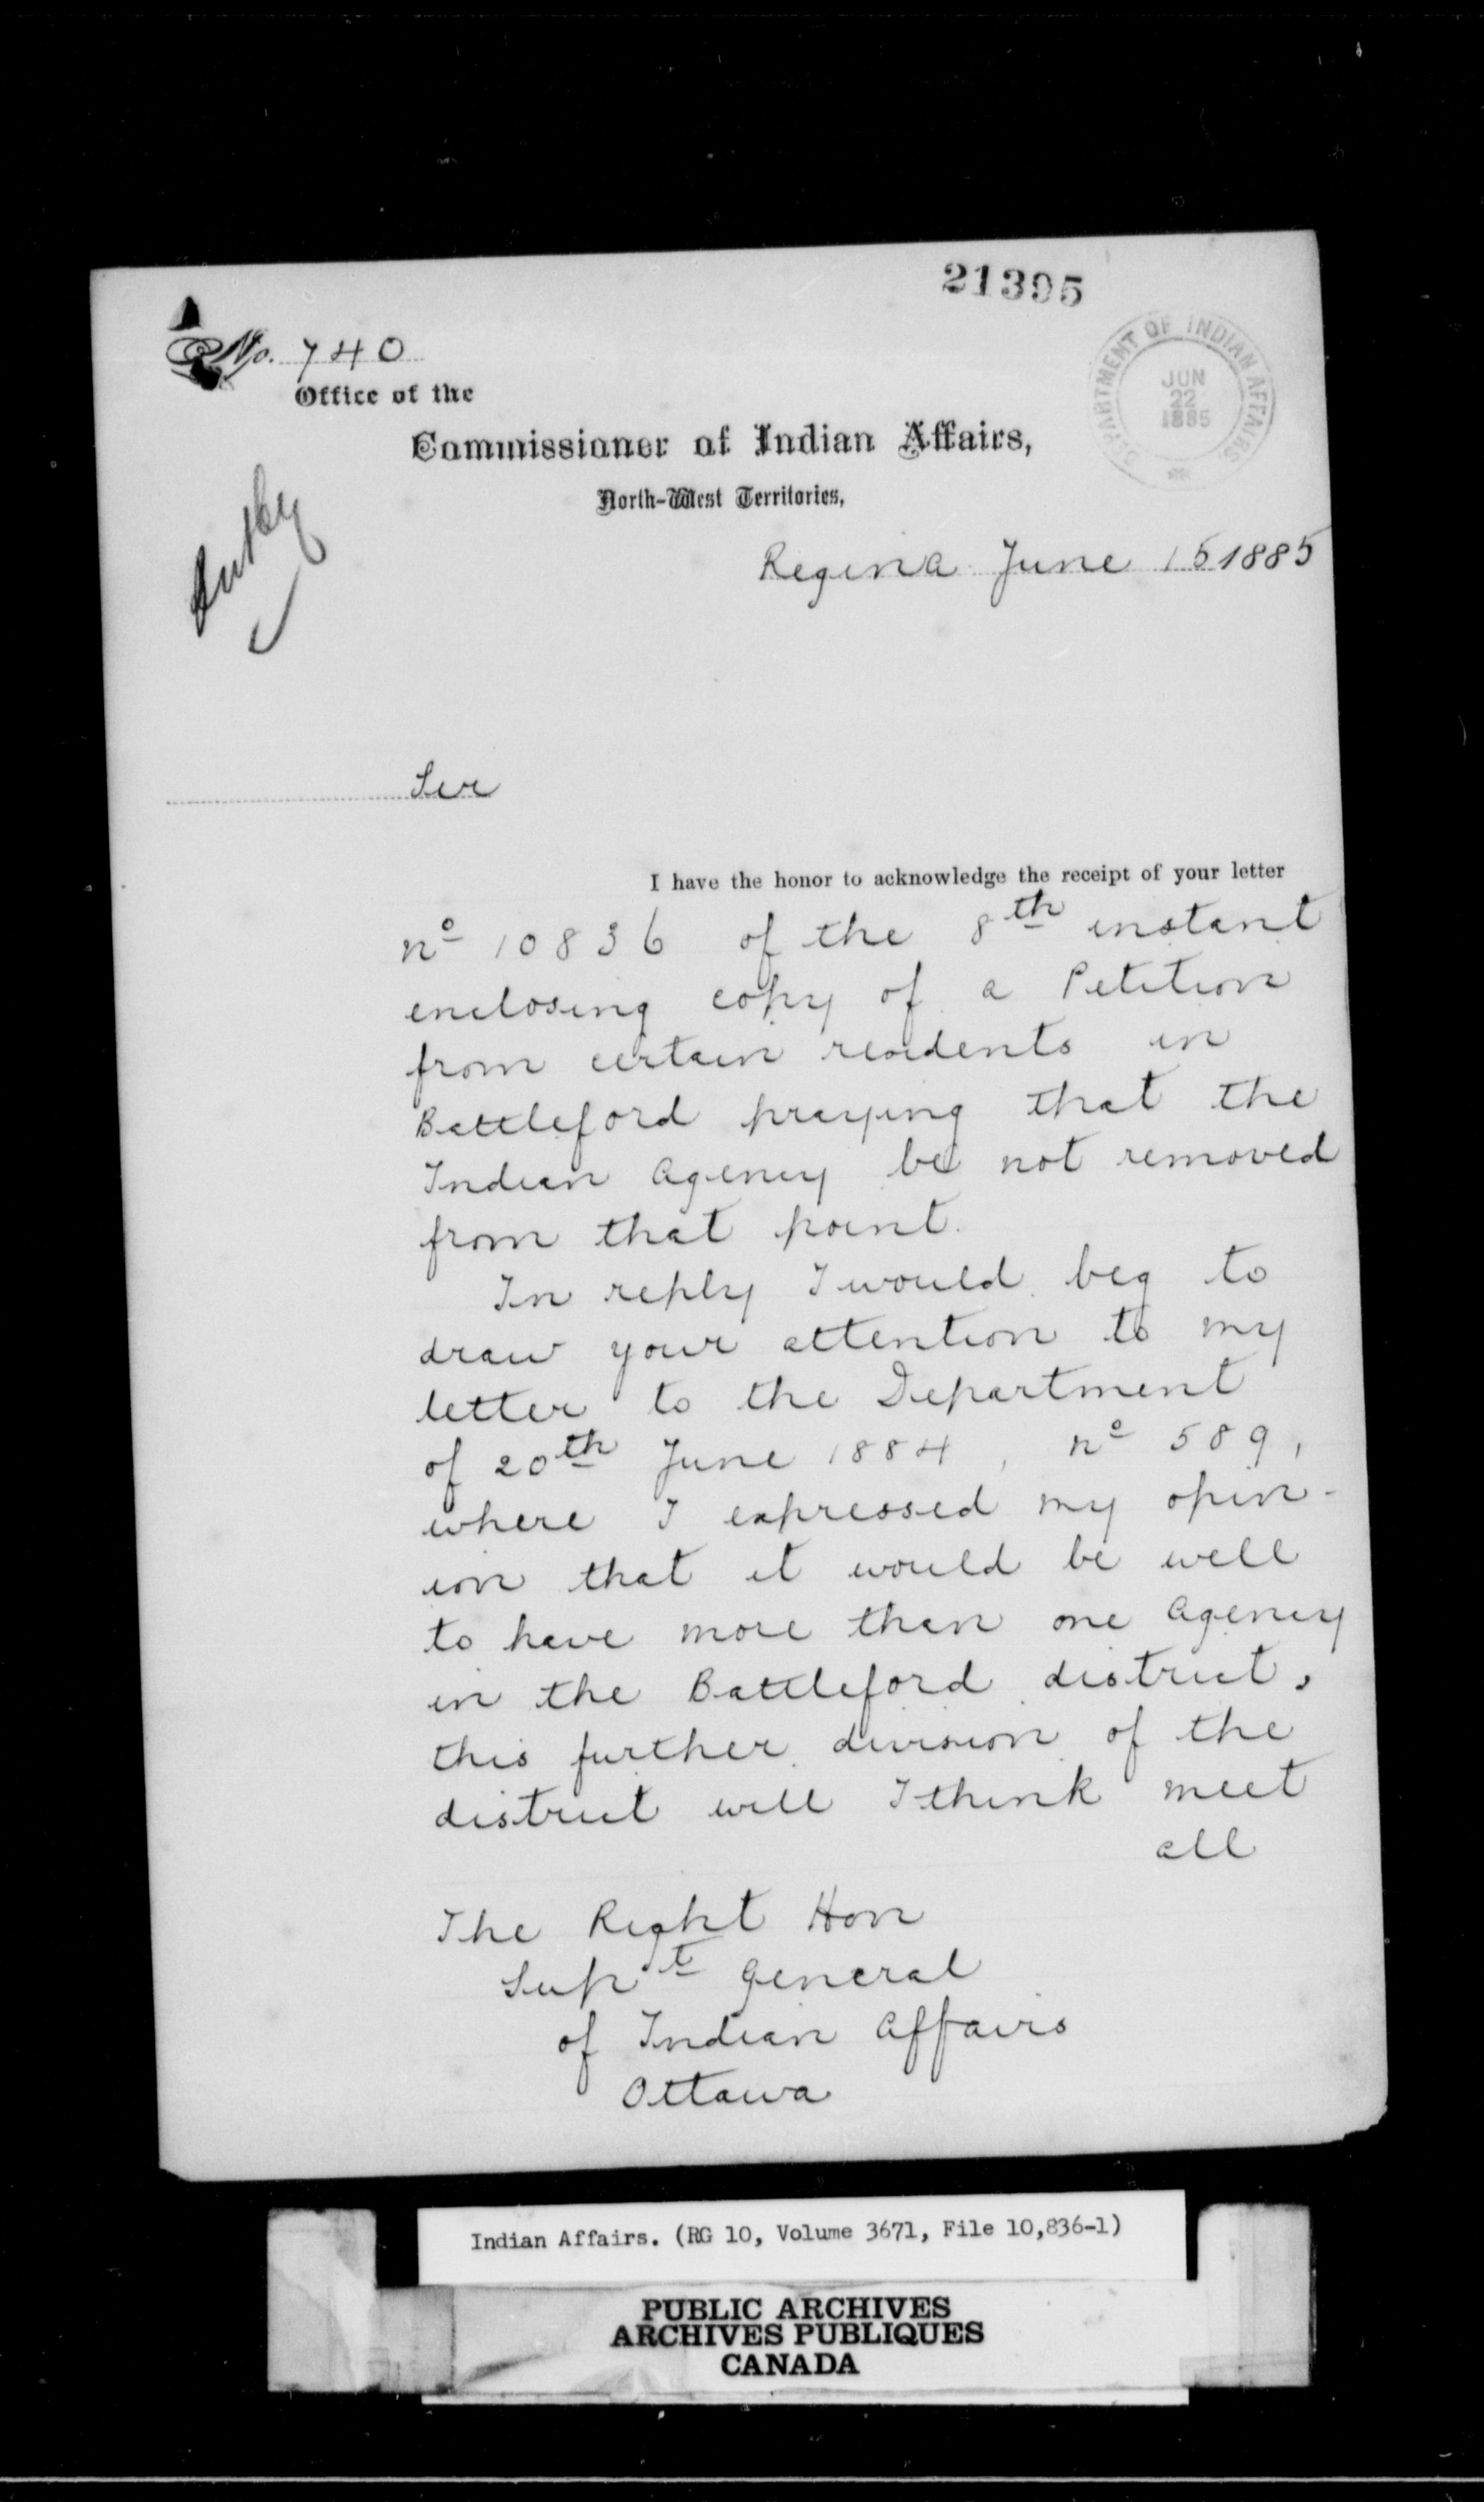 21395
No. 740
Office of the
Commissioner of Indian Affairs,
North-West Territories,
DEPARTMENT OF INDIAN AFFAIRS
JUN
22
1885
Regina June 15 1885
Sir
I have the honor to acknowledge the receipt of your letter
nº 10836 of the 8th instant
enclosing copy of a Petition
from certain residents in
Battleford praying that the
Indian Agency be not removed
from that point.
In reply I would beg to
draw your attention to my
letter to the Department
of 20th June 1884, nº 589,
where I expressed my opin-
ion that it would be well
to have more than one Agency
in the Battleford district,
this further division of the
district will I think meet
all
The Right Hon
Supt General
of Indian Affairs
Ottawa
Indian Affairs. (RG 10, Volume 3671, File 10,836-1)
PUBLIC ARCHIVES
ARCHIVES PUBLIQUES
CANADA